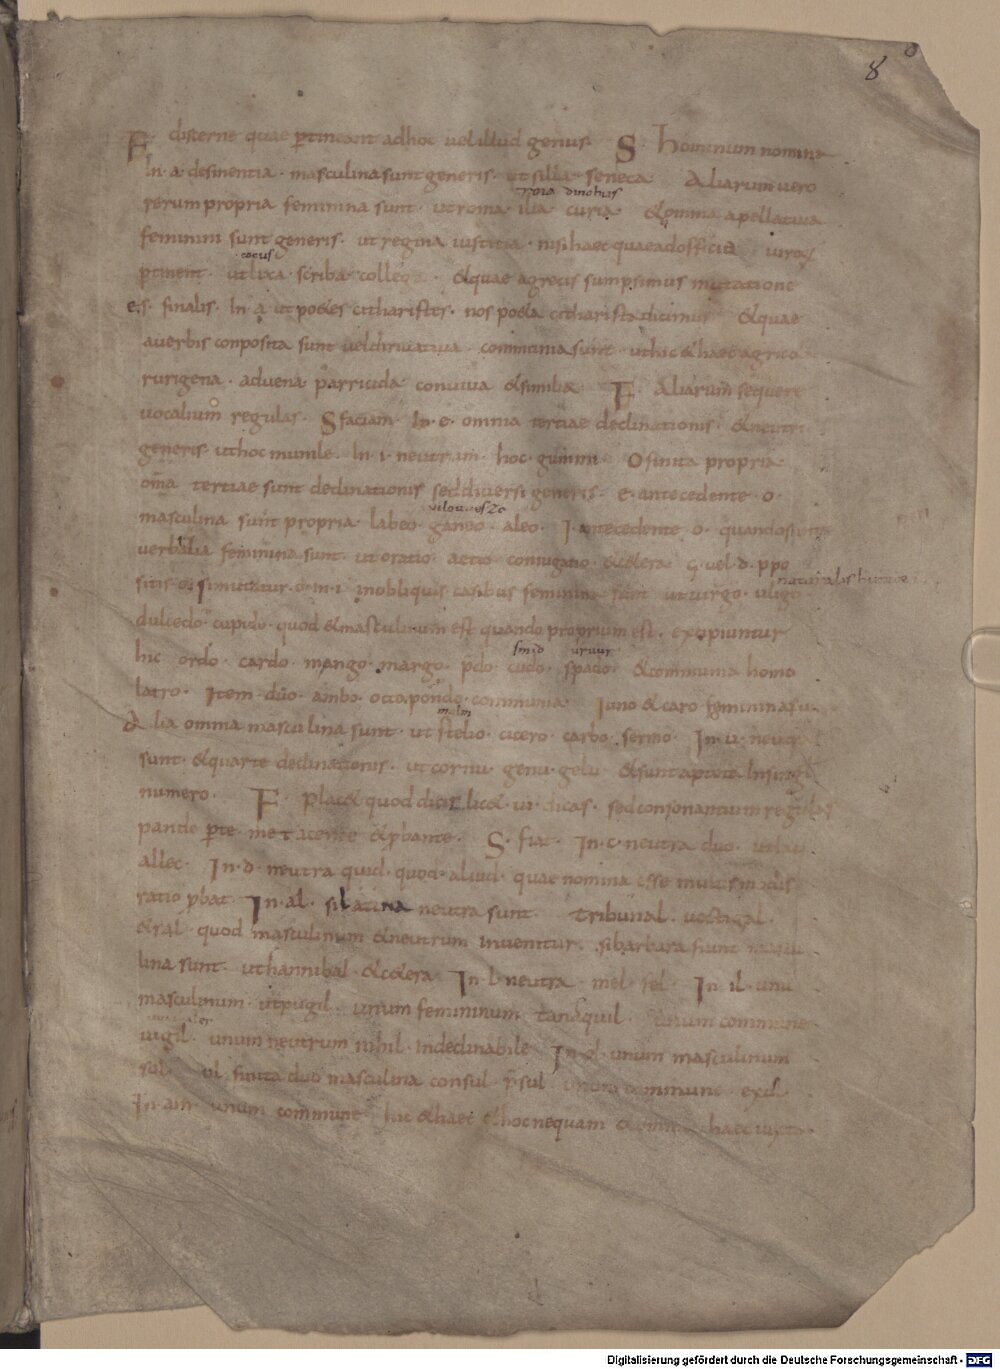 8
F disterne quae ptineant adhoc uelillud genus S Hominum nomina
In · a · desinentia · masculina sunt generis · ut silla · seneca Aliarum uero
troia
rerum propria feminina sunt · ut roma · ilia · curia & omnia apellatiua
feminini sunt generis · ut regina iustitia · nisi haec quae ad officia uiroꝝ
cocus
ptinent · ut lixa · scriba · colleg & quae agrecis sumpsimus mutatione
es · finalis · In · a · ut po&es citharistes · nos po&a citharista dicimus & quae
auerbis conposita sunt uel diriuatiua · communia sunt · ut hic & haec agrico
rurigena · aduena parricida conuiua & similia F Aliarum sequere
uocalium regulas · S faciam · In · e · omnia tertiae declinationis · & neutri
generis · ut hoc mumle · In · i · neutrum · hoc · gummi O finita propria
om̄a tertiae sunt declinationis sed diuersi generis · e · antecedente · o ·
masculina sunt propria labeo · ganeo · aleo · I · antecedente · o · quando
uerbalia feminina sunt · ut oratio · actio · coniugatio · & c&era · g · uel · d · ppo
naturalis
sitis · o · si mutatur · o · in · i · inobliquis casibus feminina sunt ut uirgo · uligo
dulcedo · cupido · quod & masculinum est quando proprium est · excipiuntur
hic ordo · cardo · mango · margo · pdo · cudo · spado · & communia homo
latro · Item · duo · ambo · octo pondo · communia Iuno & caro feminina su
Alia omnia masculina sunt · ut stelio · cicero · carbo · sermo · In · u · neutra
sunt · & quarte declinationis · ut cornu · genu · gelu · & sunt aptota In singl
numero · F Plac& quod dicis lic& · ut · dicas · sed consonantium regulas
pande pte · me tacente & pbante · S · fiat · In · c · neutra duo · ut lac
allec · In · d · neutra quid · quod · aliud · quae nomina esse multis modis
ratio pbat In · al · si latina neutra sunt tribunal · uectagal
& sal · quod masculinum & neutrum inuenitur · si barbara sunt mascu
lina sunt · ut hannibal · & c&era In · l · neutra mel · fel · In · il · unu
masculinum · ut pugil · unum femininum tanaquil · unum commune
uigil · unum neutrum nihil · indeclinabile In · ol · unum masculinum
sol · ul · finita duo masculina consul · p̄sul unum commune exul
In · am · unum commune hic & haec & hoc nequam
Digitalisierung gefördert durch die Deutsche Forschungsgemeinschaft - DFG